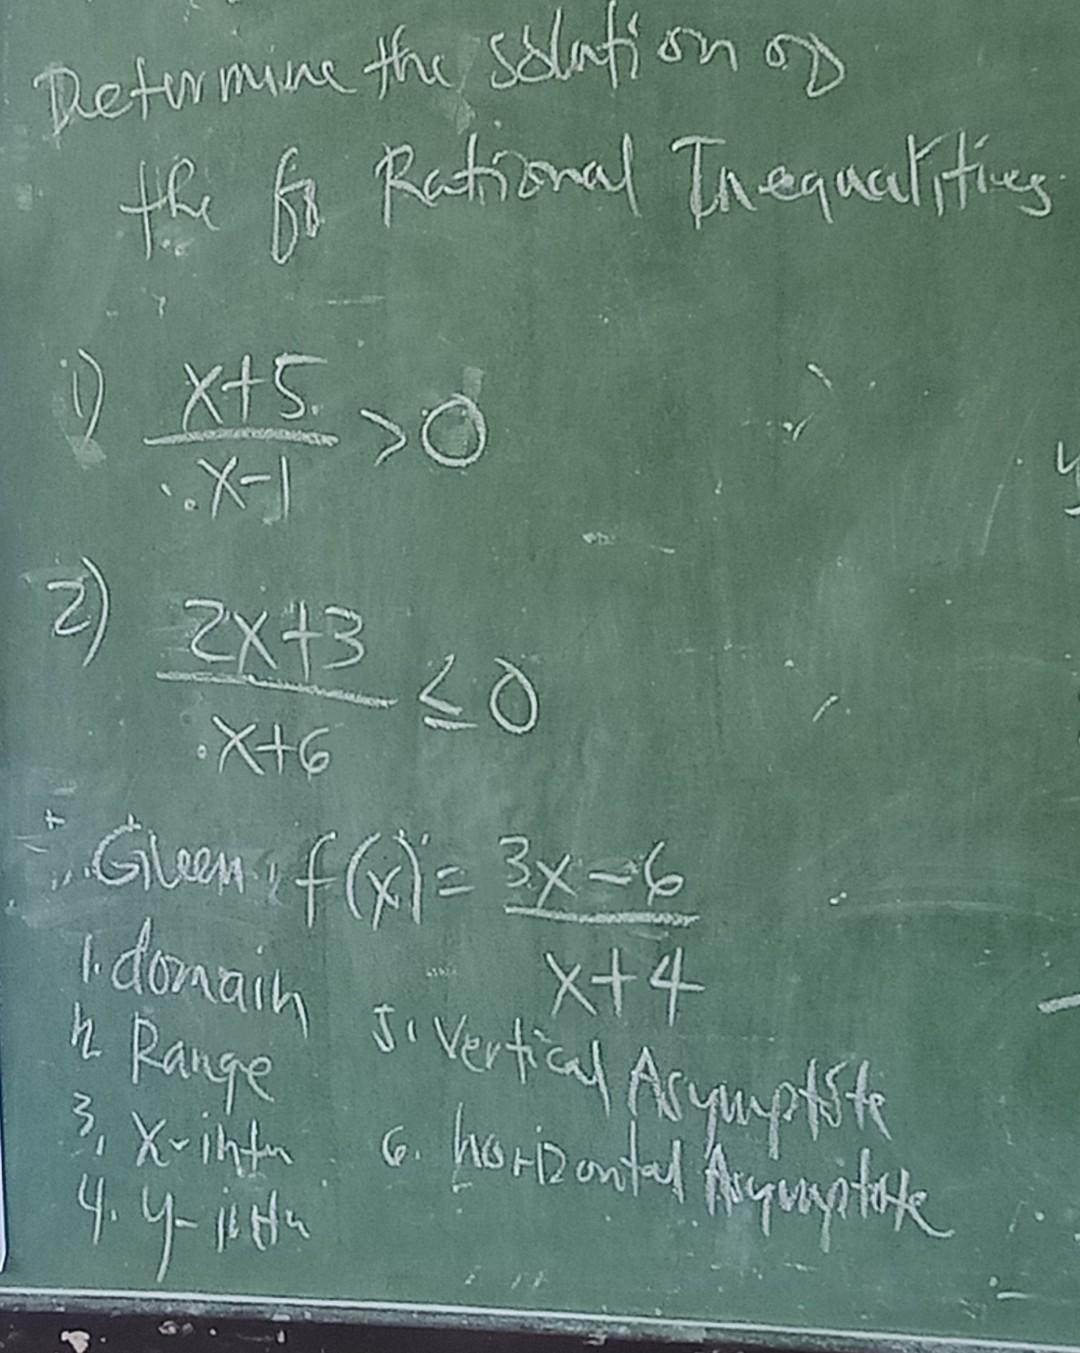 Determine the solution of
the ff Rational Inequalities
1) x+5 > 0
x-1
2) 2x+3 ≤ 0
x+6
Given: f(x) = 3x-6
x+4
1. domain
2. Range
3. x-intr
4. y-intr
5. Vertical Asymptote
6. horizontal Asymptote